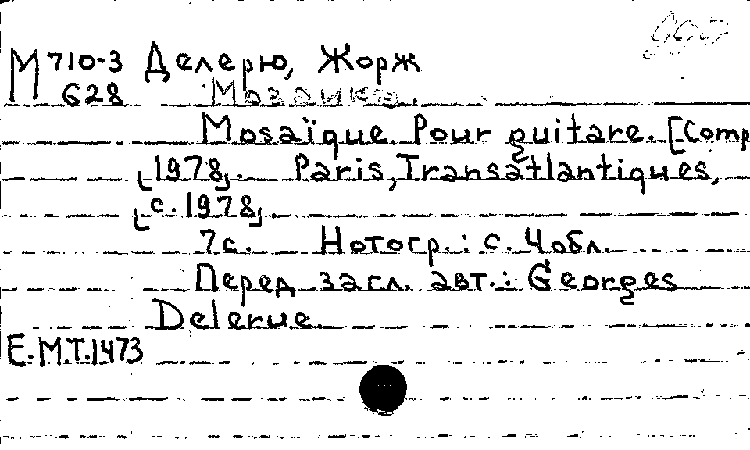 М 710-3 Делерю, Жорж
628 Мозаика.
Mosaïque. Pour guitare. [Comp
1978]. Paris, Transatlantiques,
[c. 1978].
7 с. Нотогр.: с. 4 обл.
Перед загл. авт.: Georges
Delerue.
E.M.T.1473